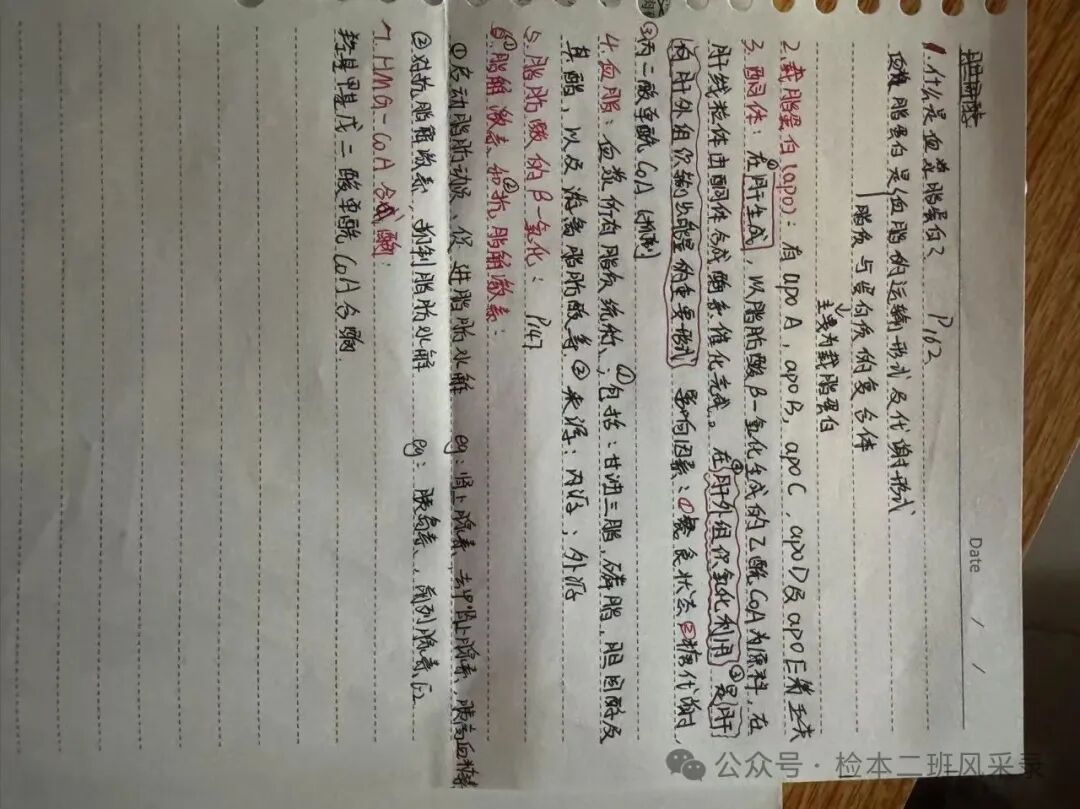 Date / /
胆固醇
1. 什么是血浆脂蛋白? P162
血浆脂蛋白是血脂的运输形式及代谢形式
脂质与蛋白质的复合体
主要为载脂蛋白
2. 载脂蛋白(apo): 有apoA, apoB, apoC, apoD及apoE等五类
3. 酮体: ①在肝生成, 以脂肪酸β-氧化生成的乙酰CoA为原料, 在
肝线粒体由酮体合成酶系催化完成。②在肝外组织氧化利用 ③是肝
向肝外组织输出能量的重要形式 影响因素: ①餐食状态 ②糖代谢
③丙二酸单酰CoA (抑制)
4. 血脂: 血浆所有脂质统称; ①包括: 甘油三脂, 磷脂, 胆固醇及
其酯, 以及游离脂肪酸等 ②来源: 内源; 外源
5. 脂肪酸的β-氧化: P147
6. ①脂解激素和②抗脂解激素:
①启动脂肪动员, 促进脂肪水解 eg: 肾上腺素, 去甲肾上腺素, 胰高血糖素
②对抗脂解激素, 抑制脂肪水解 eg: 胰岛素、前列腺素E2
7. HMG-CoA合成酶:
羟基甲基戊二酸单酰CoA合酶
公众号·检本二班风采录